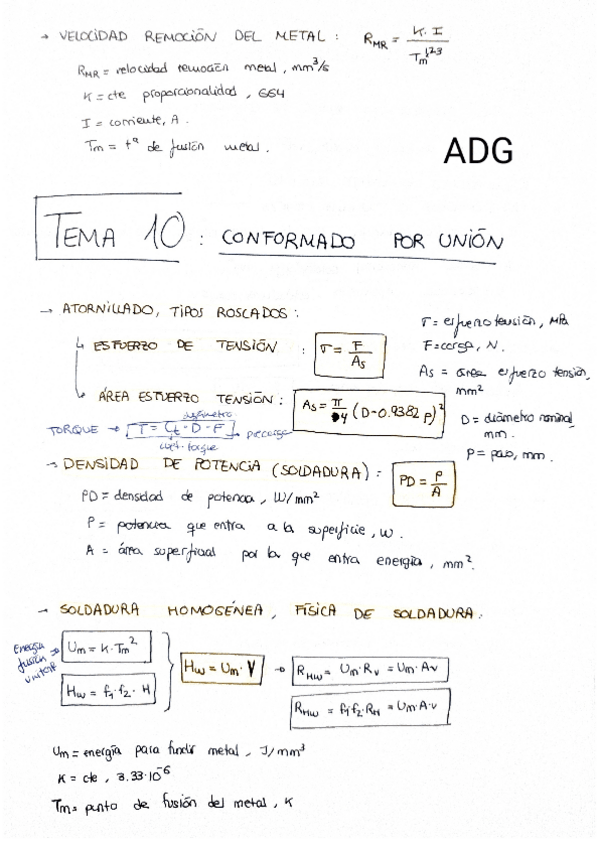 → VELOCIDAD REMOCIÓN DEL METAL : R_MR = K·I / Tm^1,23
R_MR = velocidad remoción metal, mm³/s
K = cte proporcionalidad, 664
I = corriente, A.
Tm = tª de fusión metal.
ADG
TEMA 10 : CONFORMADO POR UNIÓN
→ ATORNILLADO, TIPOS ROSCADOS :
↳ ESFUERZO DE TENSIÓN : σ = F / As
σ = esfuerzo tensión, MPa
F = carga, N.
As = área esfuerzo tensión, mm²
↳ ÁREA ESFUERZO TENSIÓN : As = π/4 (D-0.9382 p)²
D = diámetro nominal, mm.
P = paso, mm.
TORQUE → T = Ct · D · F → precarga
diámetro
coef. torque
→ DENSIDAD DE POTENCIA (SOLDADURA) : PD = P / A
PD = densidad de potencia, W/mm²
P = potencia que entra a la superficie, W.
A = área superficial por la que entra energía, mm².
→ SOLDADURA HOMOGÉNEA, FÍSICA DE SOLDADURA :
Energía fusión unitar
Um = K·Tm²
Hw = f1·f2·H
Hw = Um·V → R_HW = Um·Rv = Um·Av
R_HW = f1·f2·R_H = Um·A·v
Um = energía para fundir metal, J/mm³
K = cte, 3.33·10^-6
Tm = punto de fusión del metal, K